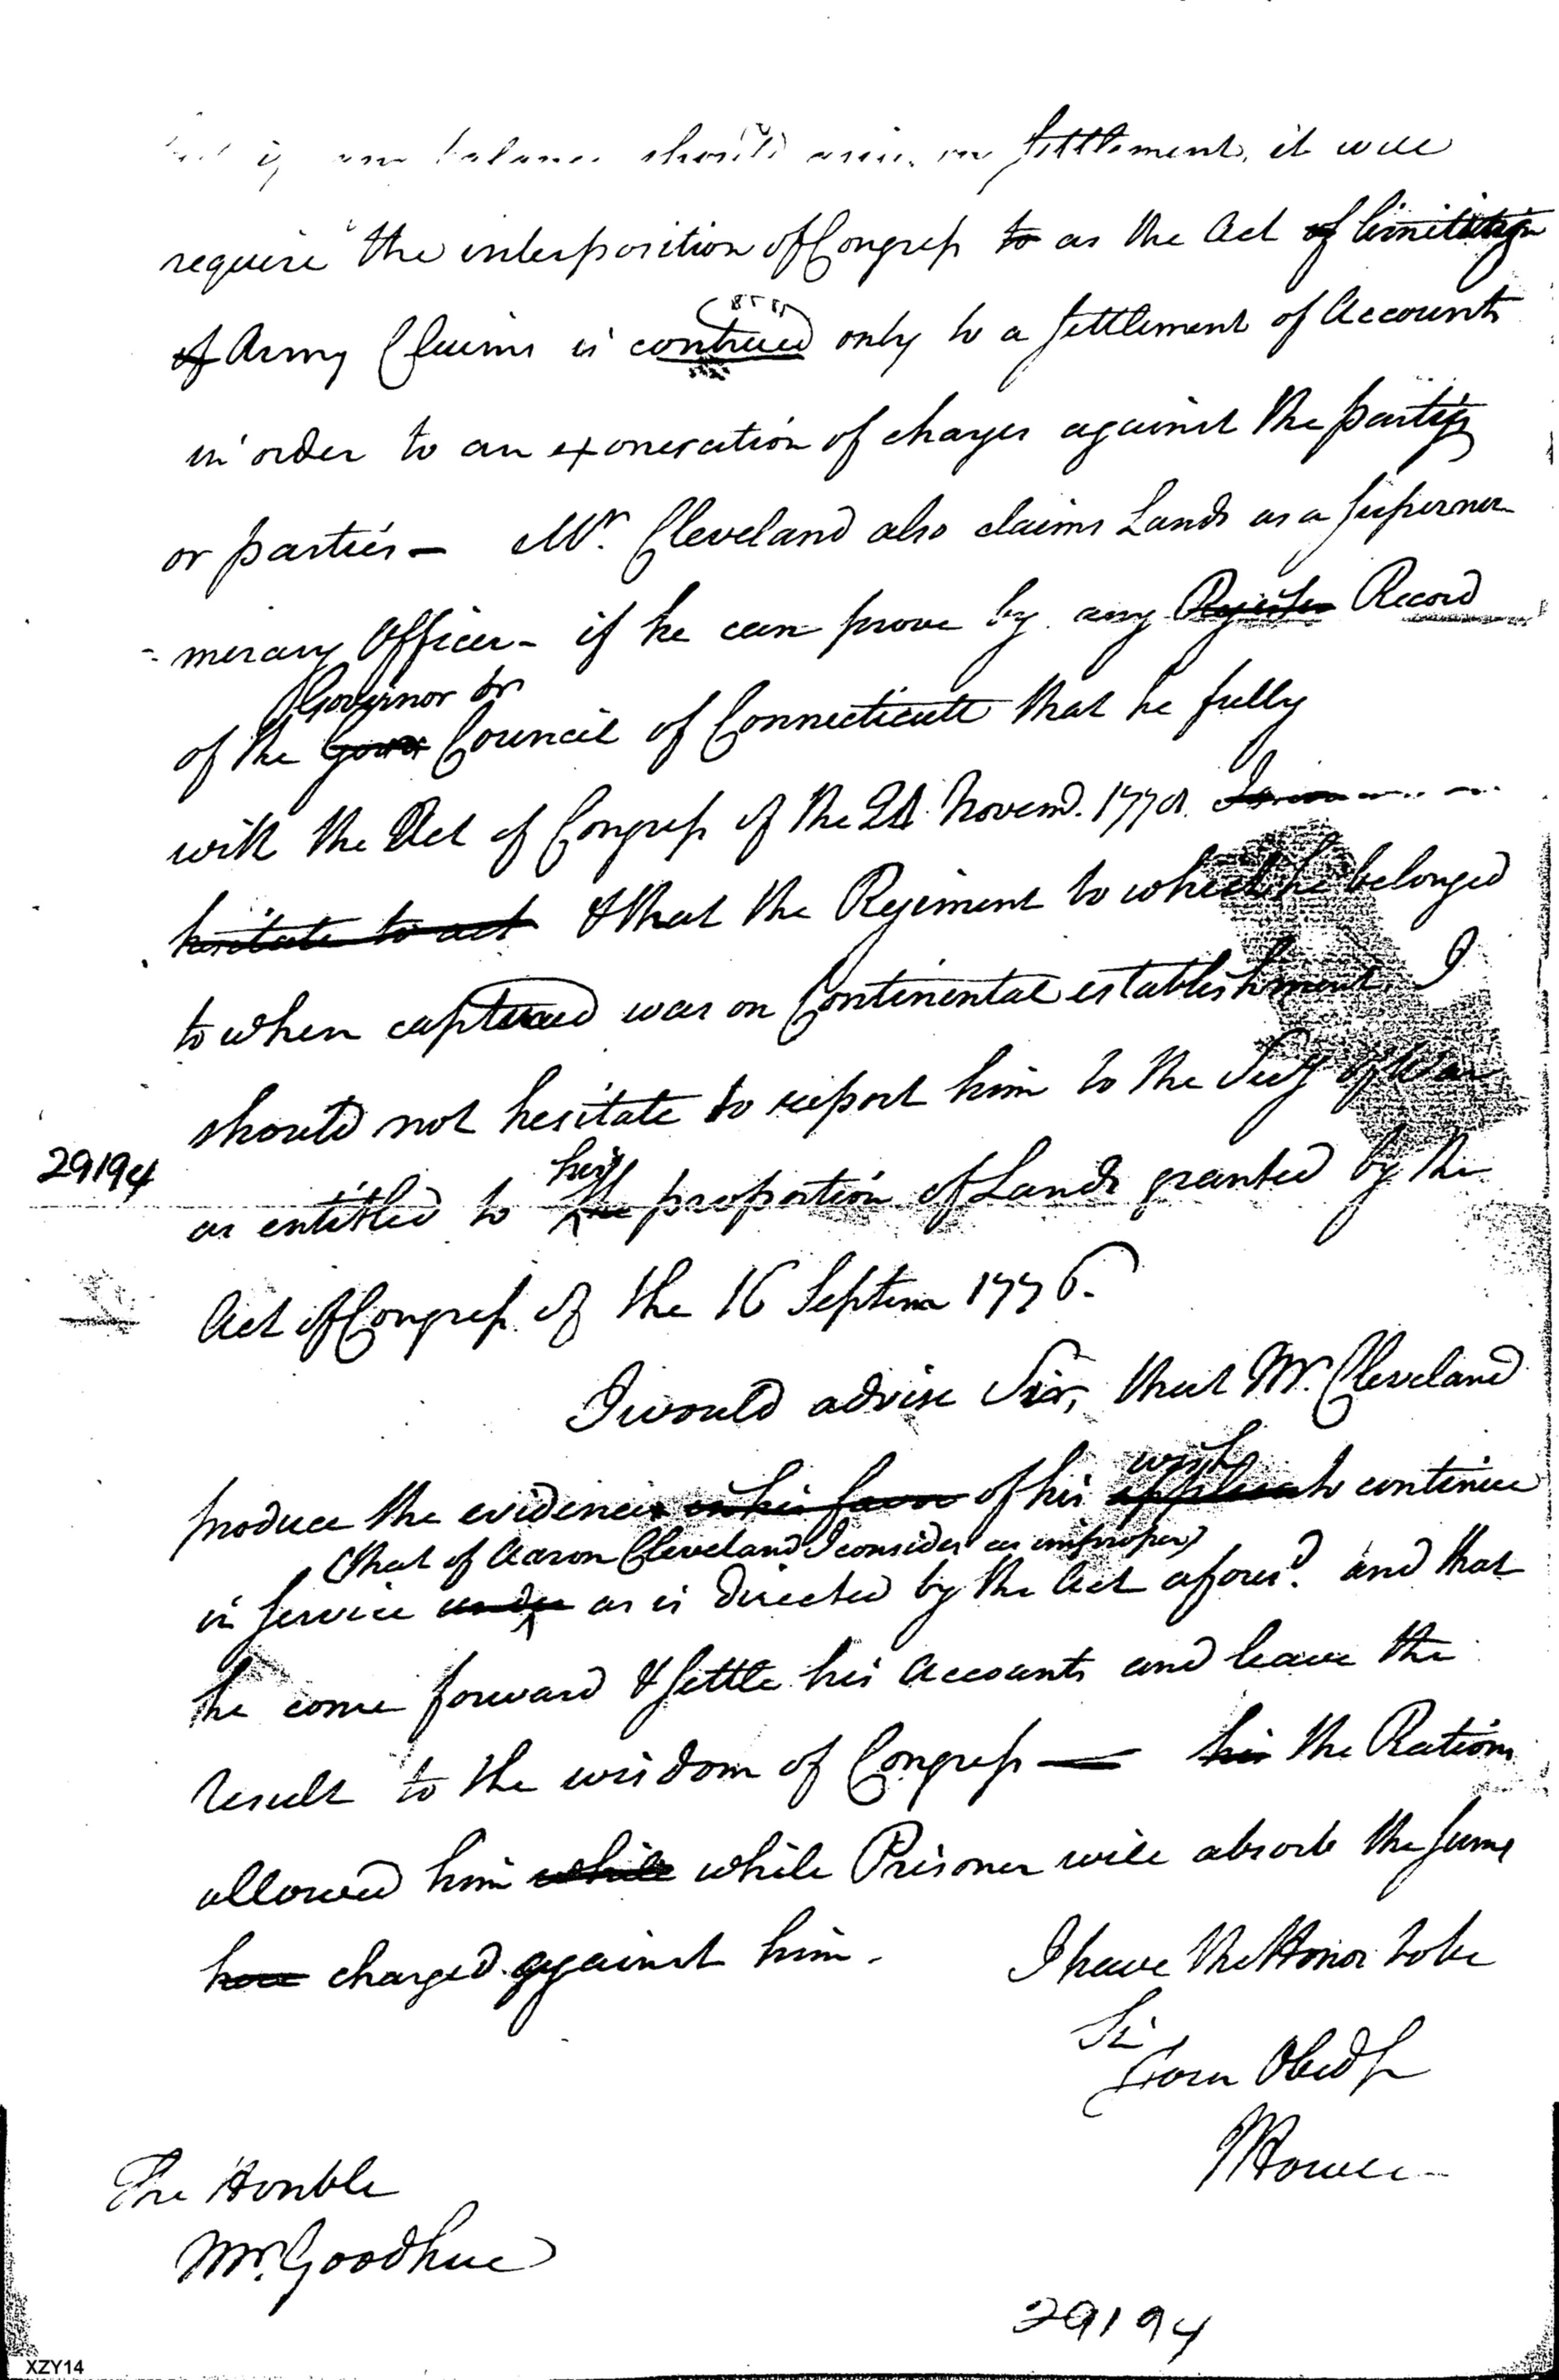 if any balance should arise on Settlement, it will
require the interposition of Congress to as the Act of limitation
of Army Claims is contrued only to a Settlement of Accounts
in order to an exoneration of charges against the party
or parties — Mr. Cleveland also claims Lands as a Supernu-
- merary Officer - if he can prove by any Register Record
Governor or
of the Govr Council of Connecticutt that he fully
with the Act of Congress of the 24 Novemb. 1778.
hesitate to act & that the Regiment to which he belonged
to when captured was on Continental establishment. I
should not hesitate to report him to the Secy of War
29194
his
as entitled to the proportion of Lands granted by the
Act of Congress of the 16 Septem 1776.
I would advise Sir, that Mr. Cleveland
wish
produce the evidence in his favor of his to continue
(that of Aaron Cleveland I consider as improper)
in Service under as is directed by the Act afores'd. and that
he come forward & Settle his Accounts and leave the
result to the wisdom of Congress — his the Rations
allowed him while while Prisoner will absorb the Sums
here charged against him.
I have the Honor to be
Sir
Your Obed S
The Honble
Mr. Goodhue
29194
XZY14